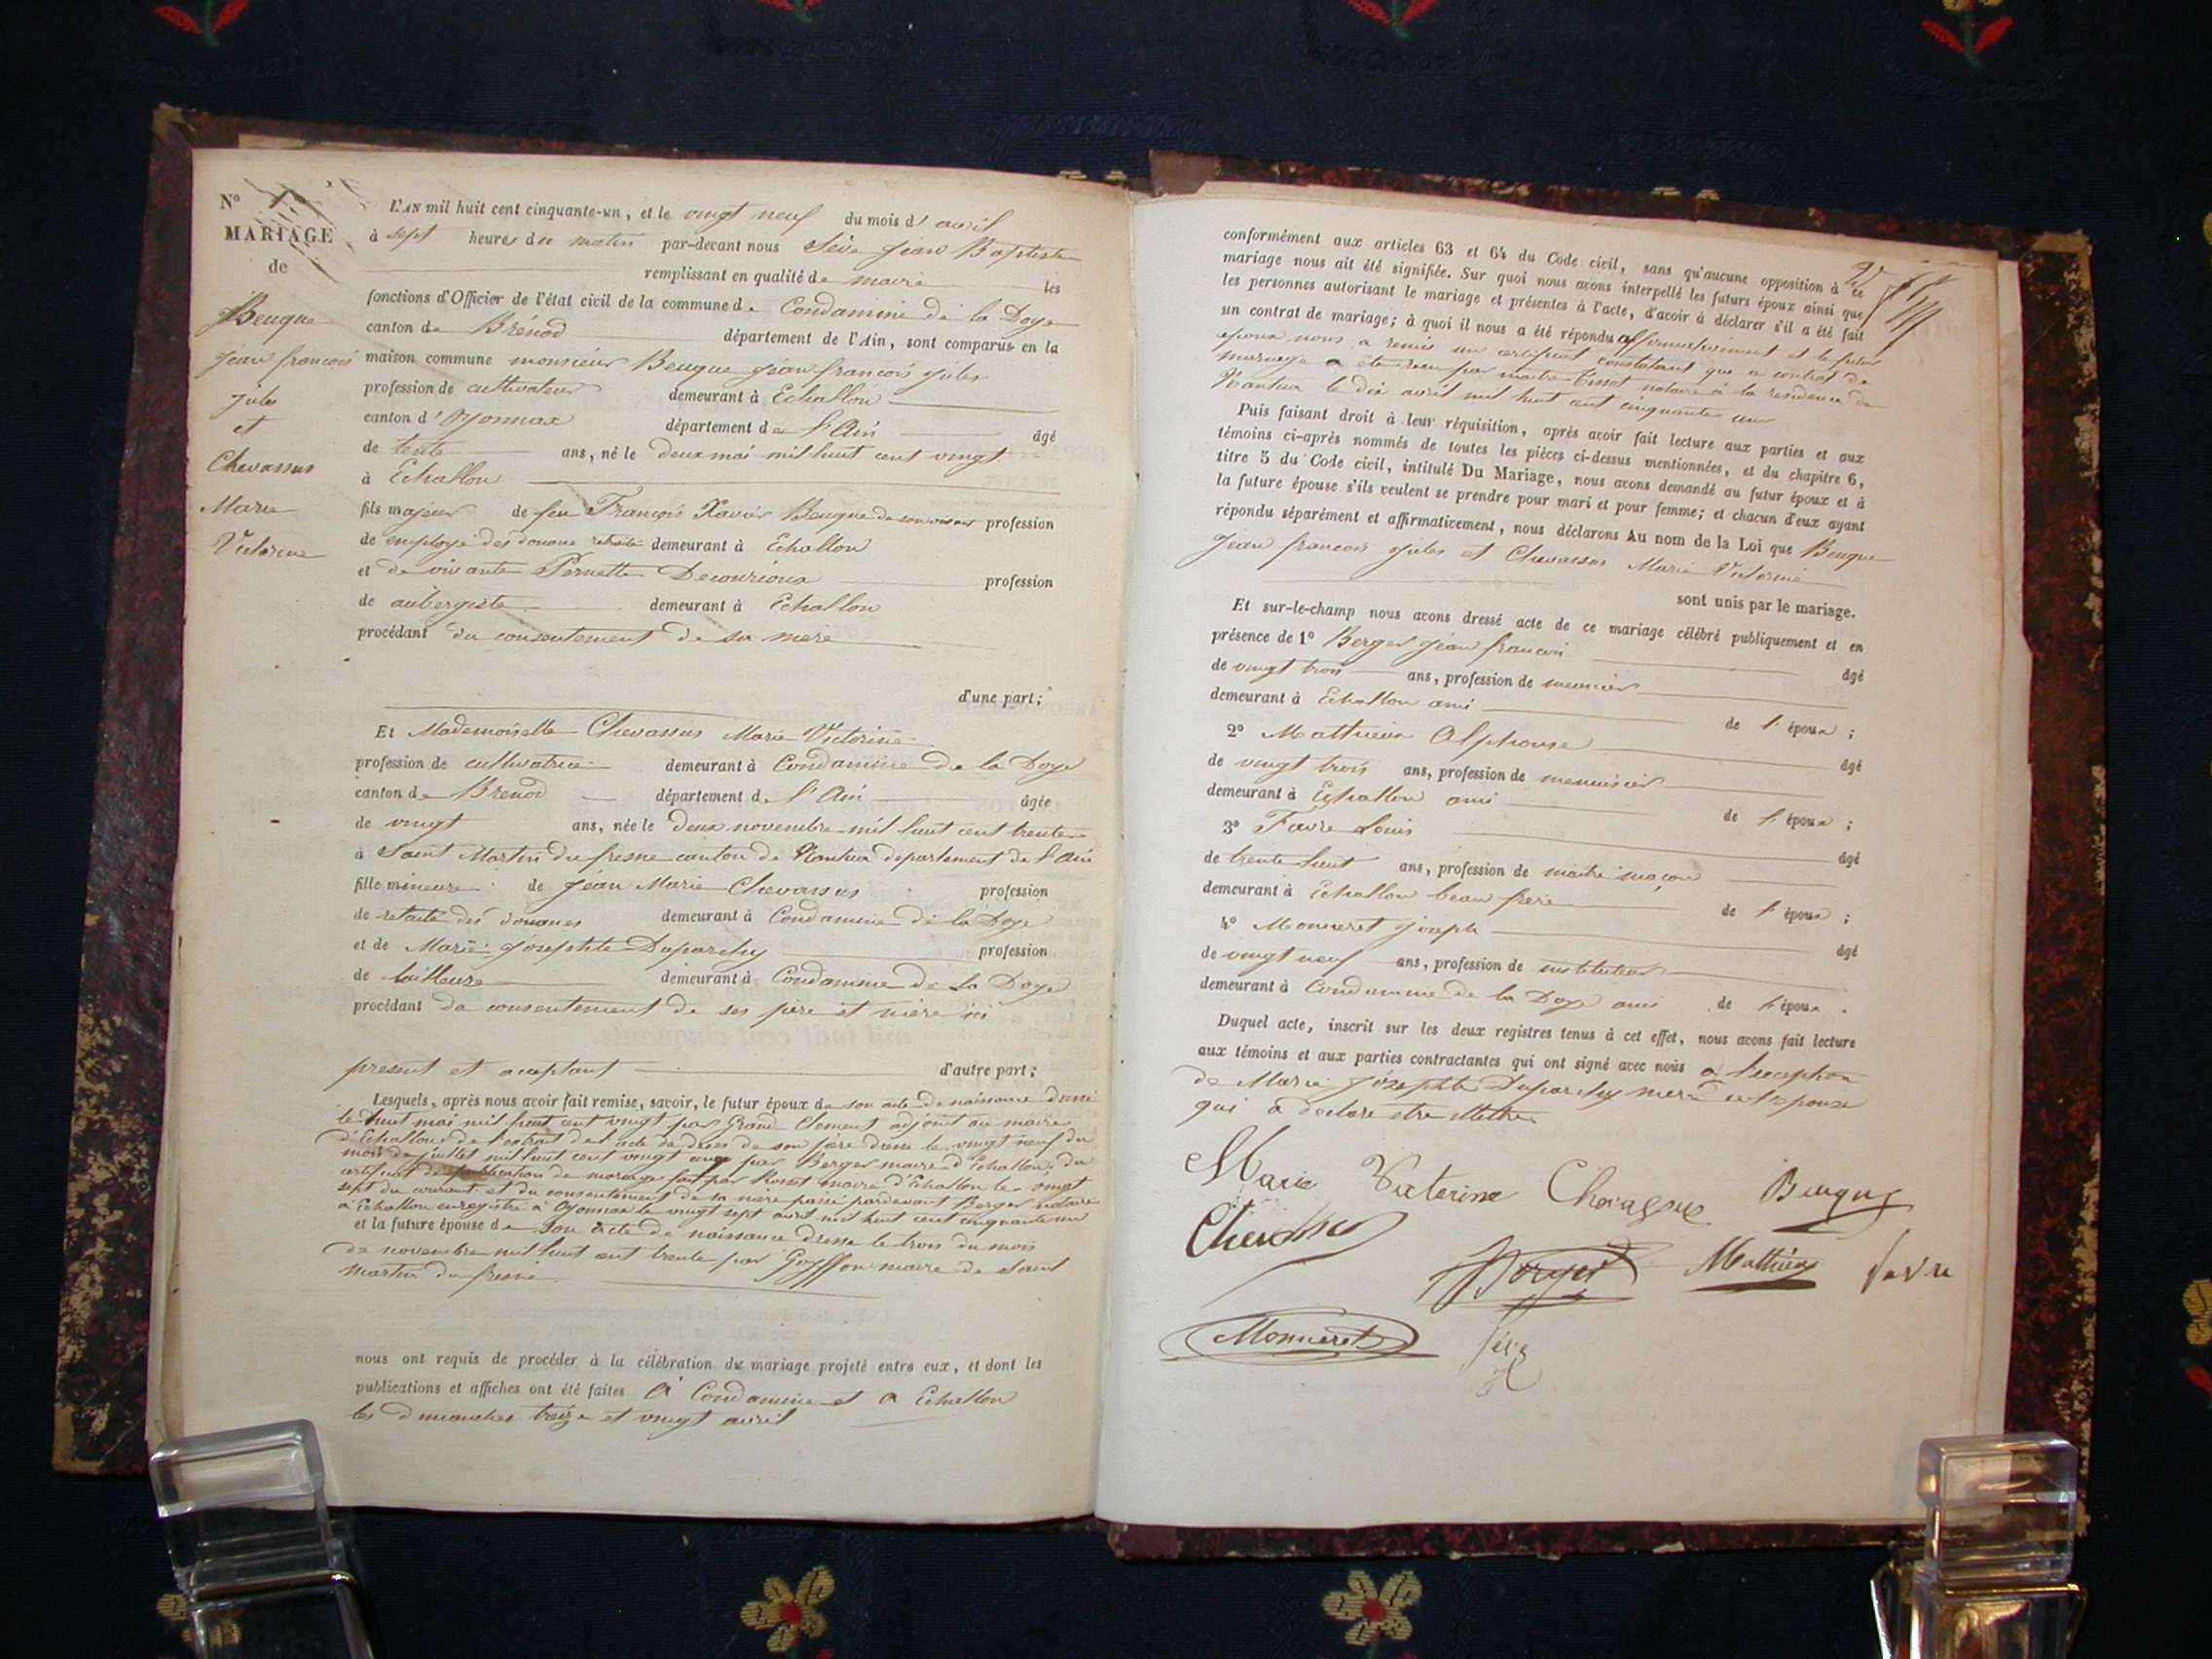 N°
MARIAGE
de
Beuque
Jean françois
Jules
et
Chevassus
Marie
Victorine
L'AN mil huit cent cinquante-un, et le vingt neuf du mois d'avril
à sept heures du matin par-devant nous Sève Jean Baptiste
remplissant en qualité de maire les
fonctions d'Officier de l'état civil de la commune de Condamine de la Doye
canton de Brénod département de l'Ain, sont comparus en la
maison commune monsieur Beuque Jean françois Jules
profession de cultivateur demeurant à Echallon
canton d'Oyonnax département de l'Ain âgé
de trente ans, né le deux mai mil huit cent vingt
à Echallon
fils majeur de feu François Xavier Beuque de son vivant profession
de employé des douane retraité demeurant à Echallon
et de vivante Pernette Decourioux profession
de aubergiste demeurant à Echallon
procédant du consentement de sa mère
d'une part;
Et Mademoiselle Chevassus Marie Victorine
profession de cultivatrice demeurant à Condamine de la Doye
canton de Brenod département de l'Ain âgée
de vingt ans, née le deux novembre mil huit cent trente
à Saint Martin du fresne canton de Nantua departement de l'Ain
fille mineure de Jean Marie Chevassus profession
de retraité des douanes demeurant à Condamine de la Doye
et de Marie Josephte Duparchy profession
de tailleuse demeurant à Condamine de la Doye
procédant du consentement de ses père et mère ici
present et aceptant d'autre part;
Lesquels, après nous avoir fait remise, savoir, le futur époux de son acte de naissance dressé
le huit mai mil huit cent vingt par Grand Clement adjoint au maire
d'Echallon de l'extrait de l'acte de décès de son père dressé le vingt neuf du
mois de juillet mil huit cent vingt par Berger maire d'Echallon, du
certificat de publication de mariage fait par Rosset maire d'Echallon le vingt
sept du courant et du consentement de sa mere passé pardevant Berger notaire
à Echallon enregistré à Oyonnax le vingt sept avril mil huit cent cinquante un
et la future épouse de son acte de naissance dressé le trois du mois
de novembre mil huit cent trente par Goyffon maire de Saint
Martin du fresne
nous ont requis de procéder à la célébration du mariage projeté entre eux, et dont les
publications et affiches ont été faites A Condamine et A Echallon
les dimanches treize et vingt avril
conformément aux articles 63 et 64 du Code civil, sans qu'aucune opposition à ce
mariage nous ait été signifiée. Sur quoi nous avons interpellé les futurs époux ainsi que
les personnes autorisant le mariage et présentes à l'acte, d'avoir à déclarer s'il a été fait
un contrat de mariage; à quoi il nous a été répondu affirmativement et le futur
epoux nous a remis un certificat constatant que ce contrat de
mariage a été recu par maitre Tissot notaire à la residence de
Nantua le dix avril mil huit cent cinquante un
Puis faisant droit à leur réquisition, après avoir fait lecture aux parties et aux
témoins ci-après nommés de toutes les pièces ci-dessus mentionnées, et du chapitre 6,
titre 5 du Code civil, intitulé Du Mariage, nous avons demandé au futur époux et à
la future épouse s'ils veulent se prendre pour mari et pour femme; et chacun d'eux ayant
répondu séparément et affirmativement, nous déclarons Au nom de la Loi que Beuque
Jean francois Jules et Chevassus Marie Victorine
sont unis par le mariage.
Et sur-le-champ nous avons dressé acte de ce mariage célébré publiquement et en
présence de 1° Berger Jean francois âgé
de vingt trois ans, profession de menuisier
demeurant à Echallon ami de l'époux;
2° Mathieux Alphonse âgé
de vingt trois ans, profession de menuisier
demeurant à Echallon ami de l'époux;
3° Favre Louis âgé
de trente huit ans, profession de maitre maçon
demeurant à Echallon beau frere de l'époux;
4° Monneret Joseph âgé
de vingt neuf ans, profession de instituteur
demeurant à Condamine de la Doye ami de l'époux.
Duquel acte, inscrit sur les deux registres tenus à cet effet, nous avons fait lecture
aux témoins et aux parties contractantes qui ont signé avec nous a l'exception
de Marie Josephte Duparchy mere de l'epouse
qui a declare etre illettre
Marie Victorine Chevassus Beuque
Chevassus
Berger Mathieux Favre
Monneret Sève